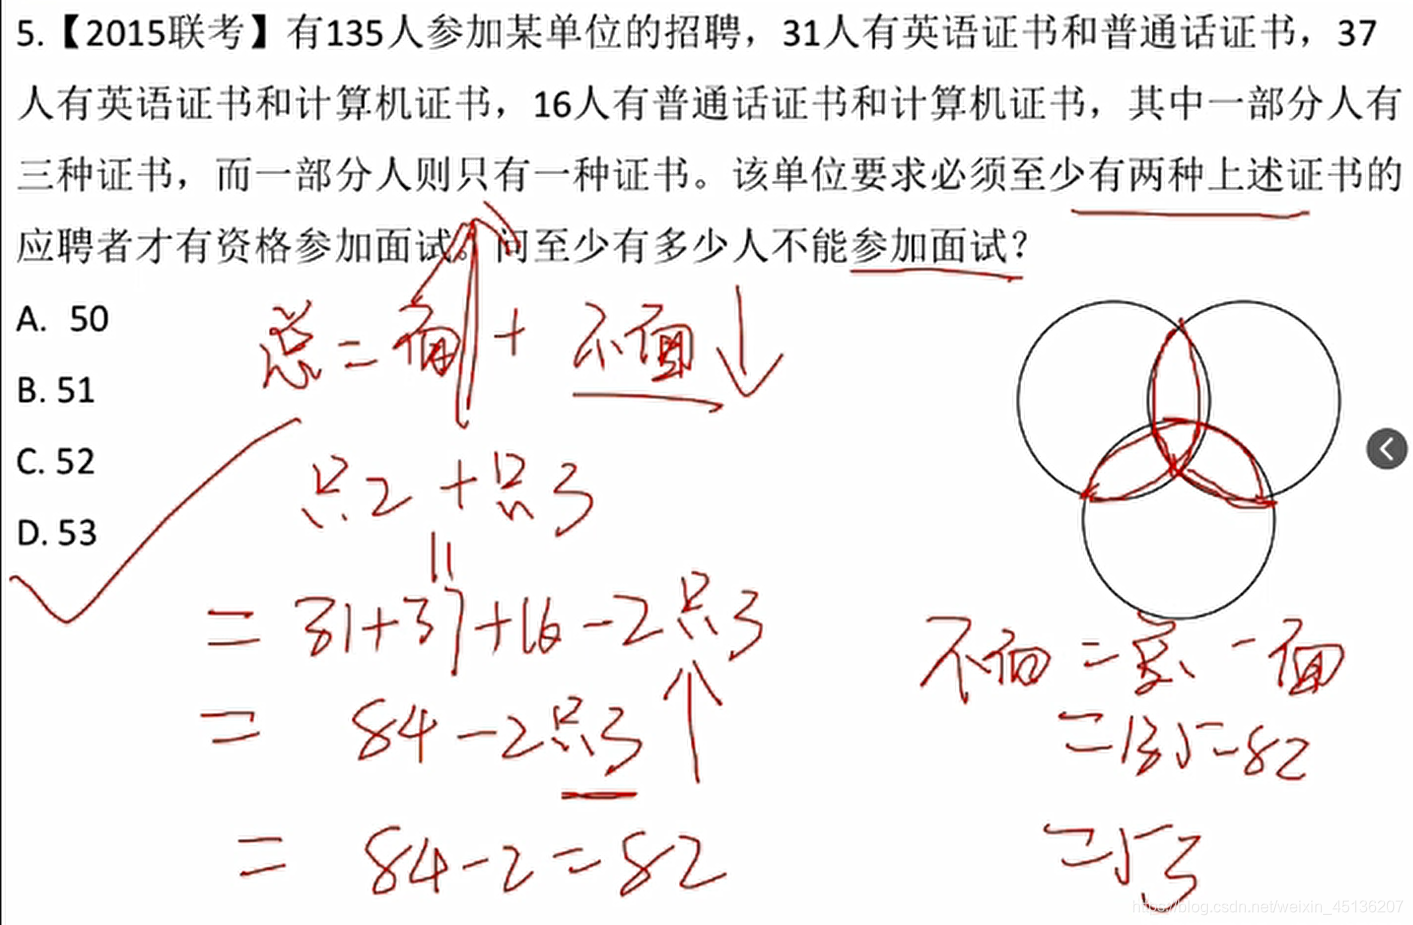 5.【2015联考】有135人参加某单位的招聘，31人有英语证书和普通话证书，37
人有英语证书和计算机证书，16人有普通话证书和计算机证书，其中一部分人有
三种证书，而一部分人则只有一种证书。该单位要求必须至少有两种上述证书的
应聘者才有资格参加面试。问至少有多少人不能参加面试？
A. 50
B. 51
C. 52
D. 53
总=面+不面
只2+只3
=31+37+16-2只3
=84-2只3
=84-2=82
不面=总-面
=135-82
=53
https://blog.csdn.net/weixin_45136207